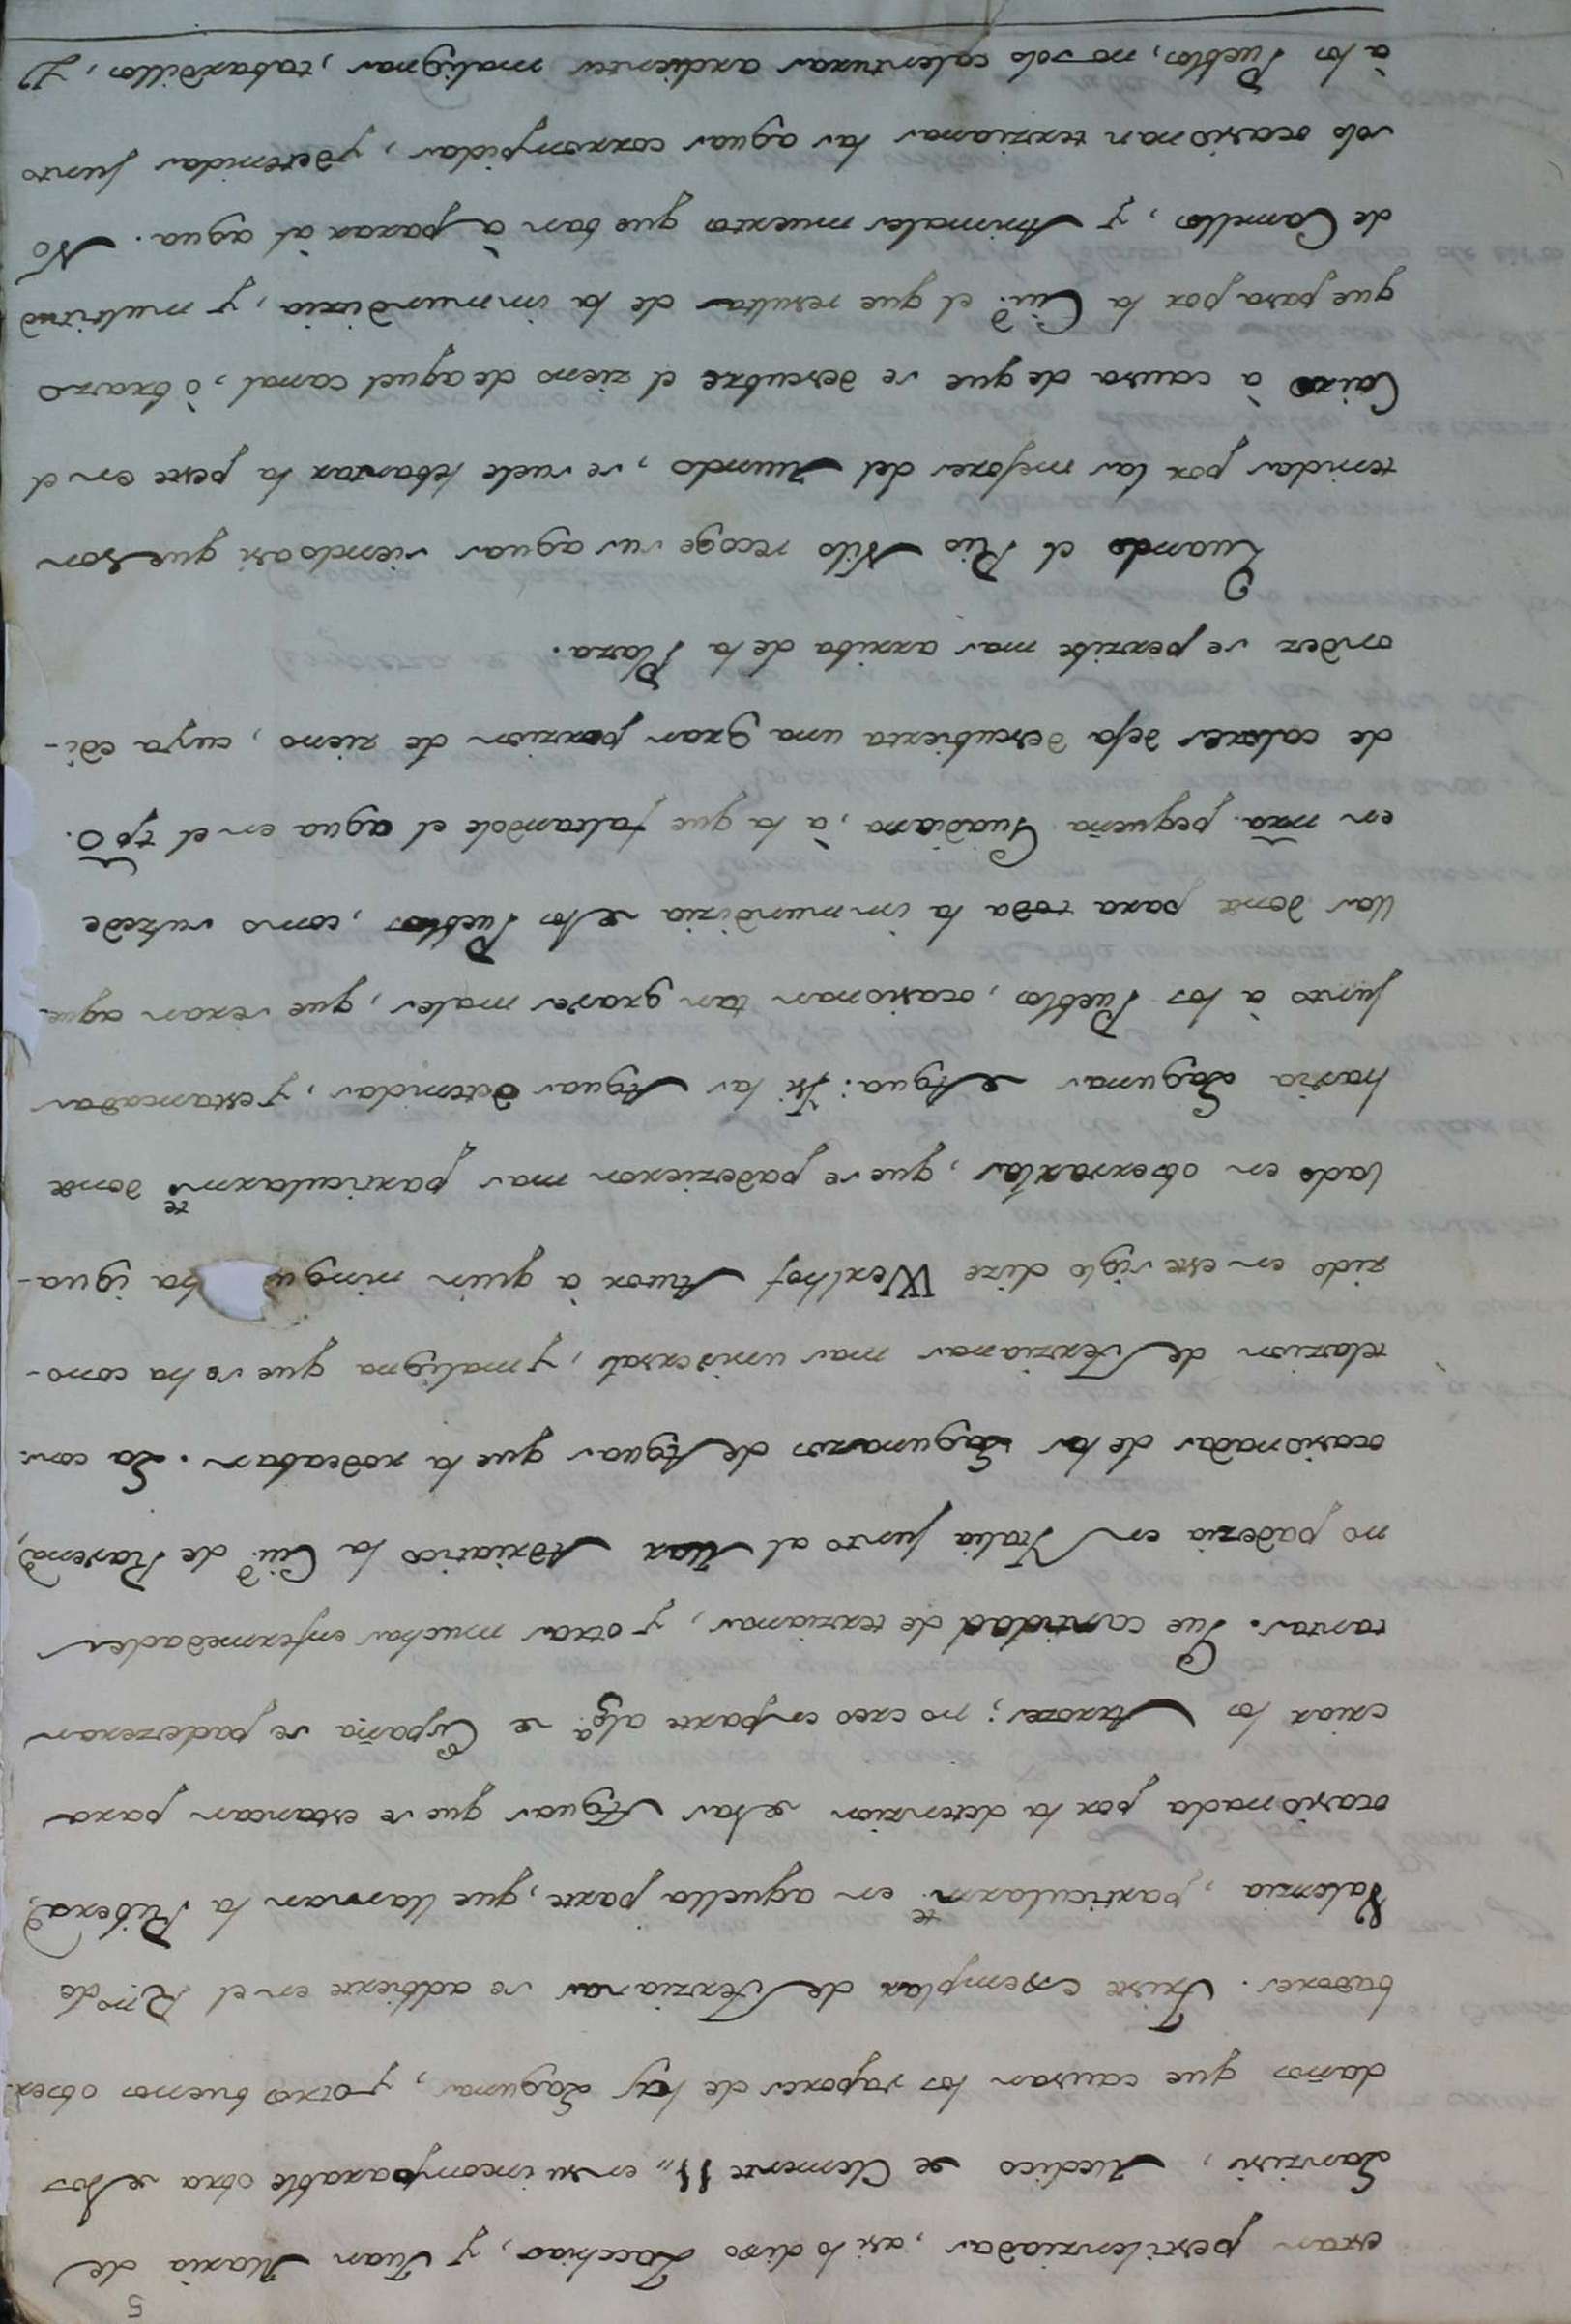 5
eran pestilenziadas, asi lo dixo Zacchias, y Juan Maria de
Lanzisi, Medico de Clemente 11,, en su incomparable obra de los
daños que causan los vapores de las Lagunas, y otros buenos obser-
badores. Triste exemplar de Terzianas se adbierte en el R.no de
Valenzia, particularm.te en aquella parte, que llaman la Ribera,
ocasionada por la detenzion de las Aguas que se estancan para
criar los Arrozes; no creo en parte alg.a de España se padezeran
tantas. Que cantidad de terzianas, y otras muchas enfermedades
no padezia en Italia junto al Mar Adriatico la Ciu.d de Ravena,
ocasionadas de los Lagunazos de Aguas que la rodeaban. La cons-
telazion de Terzianas mas universal, y maligna que se ha cono-
zido en este siglo dize Werlhof Autor à quien ningu ha igua-
lado en obserbarlas, que se padezieron mas particularm.te donde
havia Lagunas de Agua: Si las Aguas detenidas, y estancadas
junto à los Pueblos, ocasionan tan graves males, que seran aque-
llas donde para toda la immundizia de los Pueblos, como suzede
en nra. pequeña Guadiana, à la que faltandole el agua en el tpo.
de calores deja descubierta una gran porzion de zieno, cuya edi-
ondez se perzibe mas arriba de la Plaza.
Quando el Rio Nilo recoge sus aguas siendo asi que son
tenidas por las mejores del Mundo, se suele lebantar la peste en el
Cairo à causa de que se descubre el zieno de aquel canal, ò brazo
que pasa por la Ciu.d el que resulta de la immundizia, y multitud
de Camellos, y Animales muertos que ban à parar al agua. No
solo ocasionan terzianas las aguas corrompidas, y detenidas junto
à los Pueblos, no solo calenturas ardientes malignas, tabardillos, &